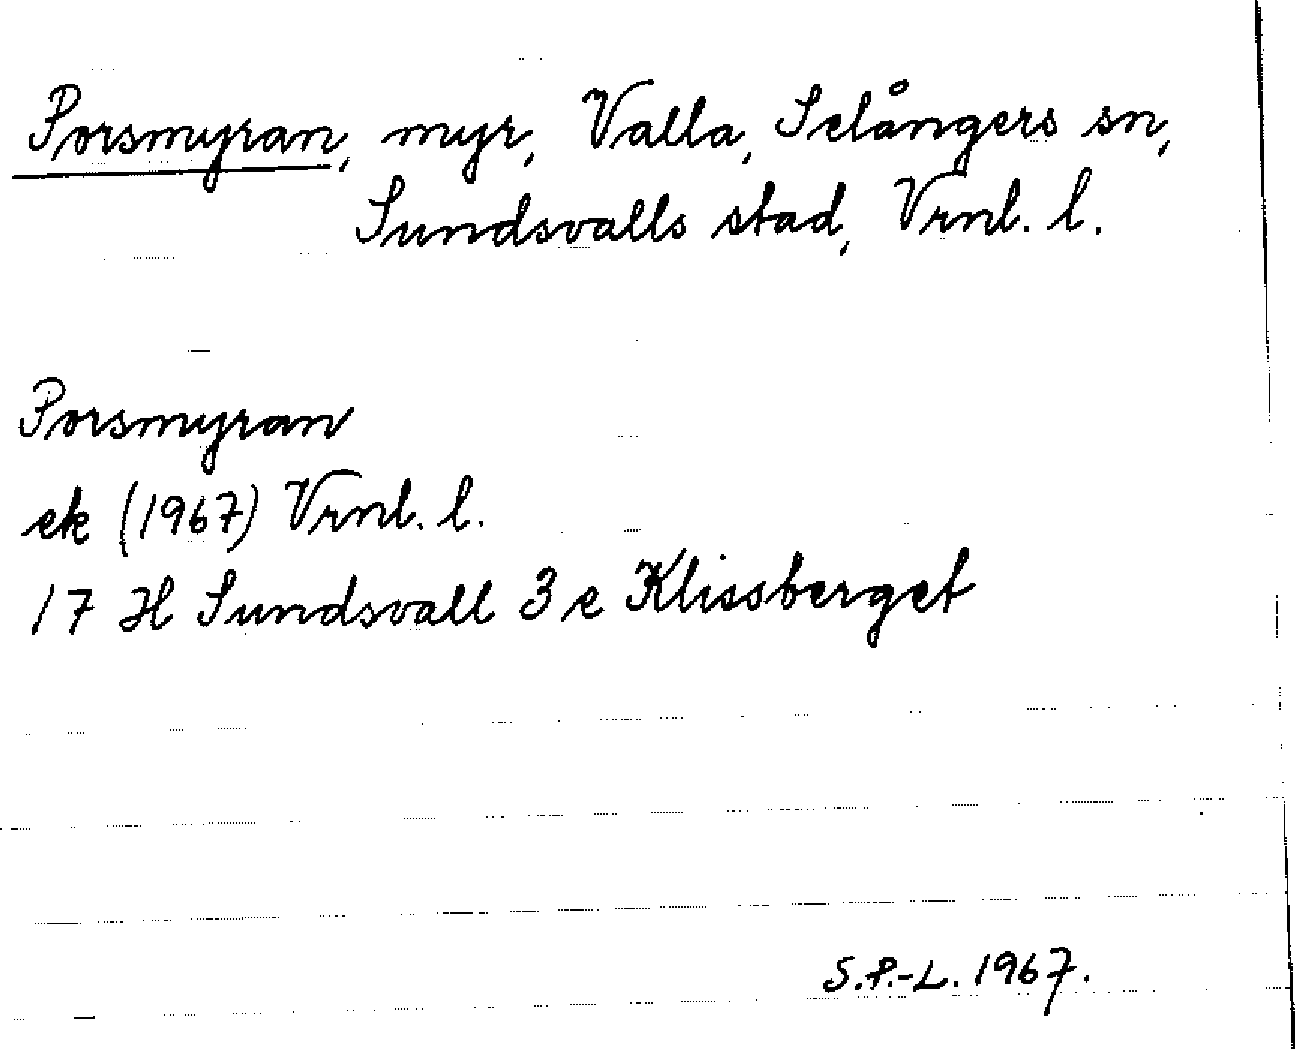 Porsmyran, myr, Valla, Selångers sn,
Sundsvalls stad, Vrnl. l.
Porsmyran
ek (1967) Vrnl. l.
17 H Sundsvall 3 e Klissberget
S.P.-L. 1967.